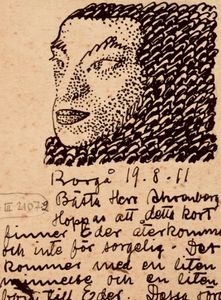 Borgå 19.8.11
Bästa Herr Ahrenberg
III 21072
Hoppas att detta kort
finner Eder återkommen
och inte för sorgelig. Det
kommer med en liten
och en liten
till Eder.